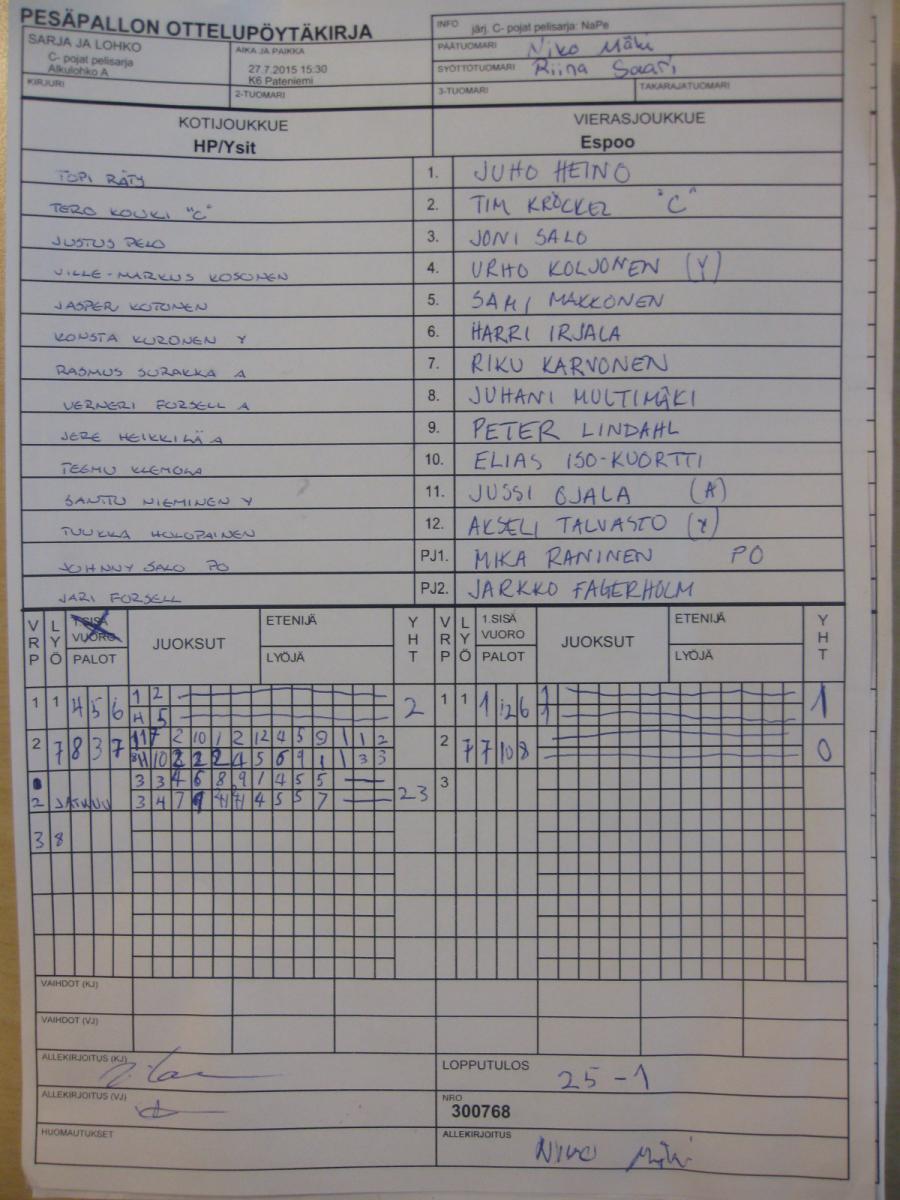 PESÄPALLON OTTELUPÖYTÄKIRJA
INFO järj. C- pojat pelisarja: NaPe
SARJA JA LOHKO
C- pojat pelisarja
Alkulohko A
AIKA JA PAIKKA
27.7.2015 15:30
K6 Pateniemi
PÄÄTUOMARI Niko Mäki
SYÖTTÖTUOMARI Riina Saari
KIRJURI
2-TUOMARI
3-TUOMARI
TAKARAJATUOMARI
KOTIJOUKKUE
HP/Ysit
VIERASJOUKKUE
Espoo
TOPI RÄTY 1. JUHO HEINO
TERO KOUKI "C" 2. TIM KRÖCKEL "C"
JUSTUS PELO 3. JONI SALO
VILLE-MARKUS KOSONEN 4. URHO KOLJONEN (Y)
JASPER KOTONEN 5. SAMI MAKKONEN
KONSTA KURONEN Y 6. HARRI IRJALA
RASMUS SURAKKA A 7. RIKU KARVONEN
VERNERI FORSELL A 8. JUHANI MULTIMÄKI
JERE HEIKKILÄ A 9. PETER LINDAHL
TEEMU KLEMOLA 10. ELIAS ISO-KUORTTI
SANTTU NIEMINEN Y 11. JUSSI OJALA (A)
TUUKKA HOLOPAINEN 12. AKSELI TALVASTO (Y)
JOHNNY SALO PO PJ1. MIKA RANINEN PO
JARI FORSELL PJ2. JARKKO FAGERHOLM
VRP LYÖ 1.SISÄ VUORO PALOT JUOKSUT ETENIJÄ LYÖJÄ YHT VRP LYÖ 1.SISÄ VUORO PALOT JUOKSUT ETENIJÄ LYÖJÄ YHT
1 1 4 5 6 1 2 2 1 1 1 12 6 1 1
4 5 1
2 7 8 3 7 11 7 2 10 1 2 12 4 5 9 1 1 2 2 7 7 10 8 0
10 2 2 2 4 5 6 9 1 1 3 3
2 JATKUU 3 3 4 6 8 9 1 4 5 5 23 3
3 4 7 9 4 5 5 7
3 8
VAIHDOT (KJ)
VAIHDOT (VJ)
ALLEKIRJOITUS (KJ)
LOPPUTULOS 25-1
ALLEKIRJOITUS (VJ)
NRO
300768
HUOMAUTUKSET
ALLEKIRJOITUS Niko Mäki